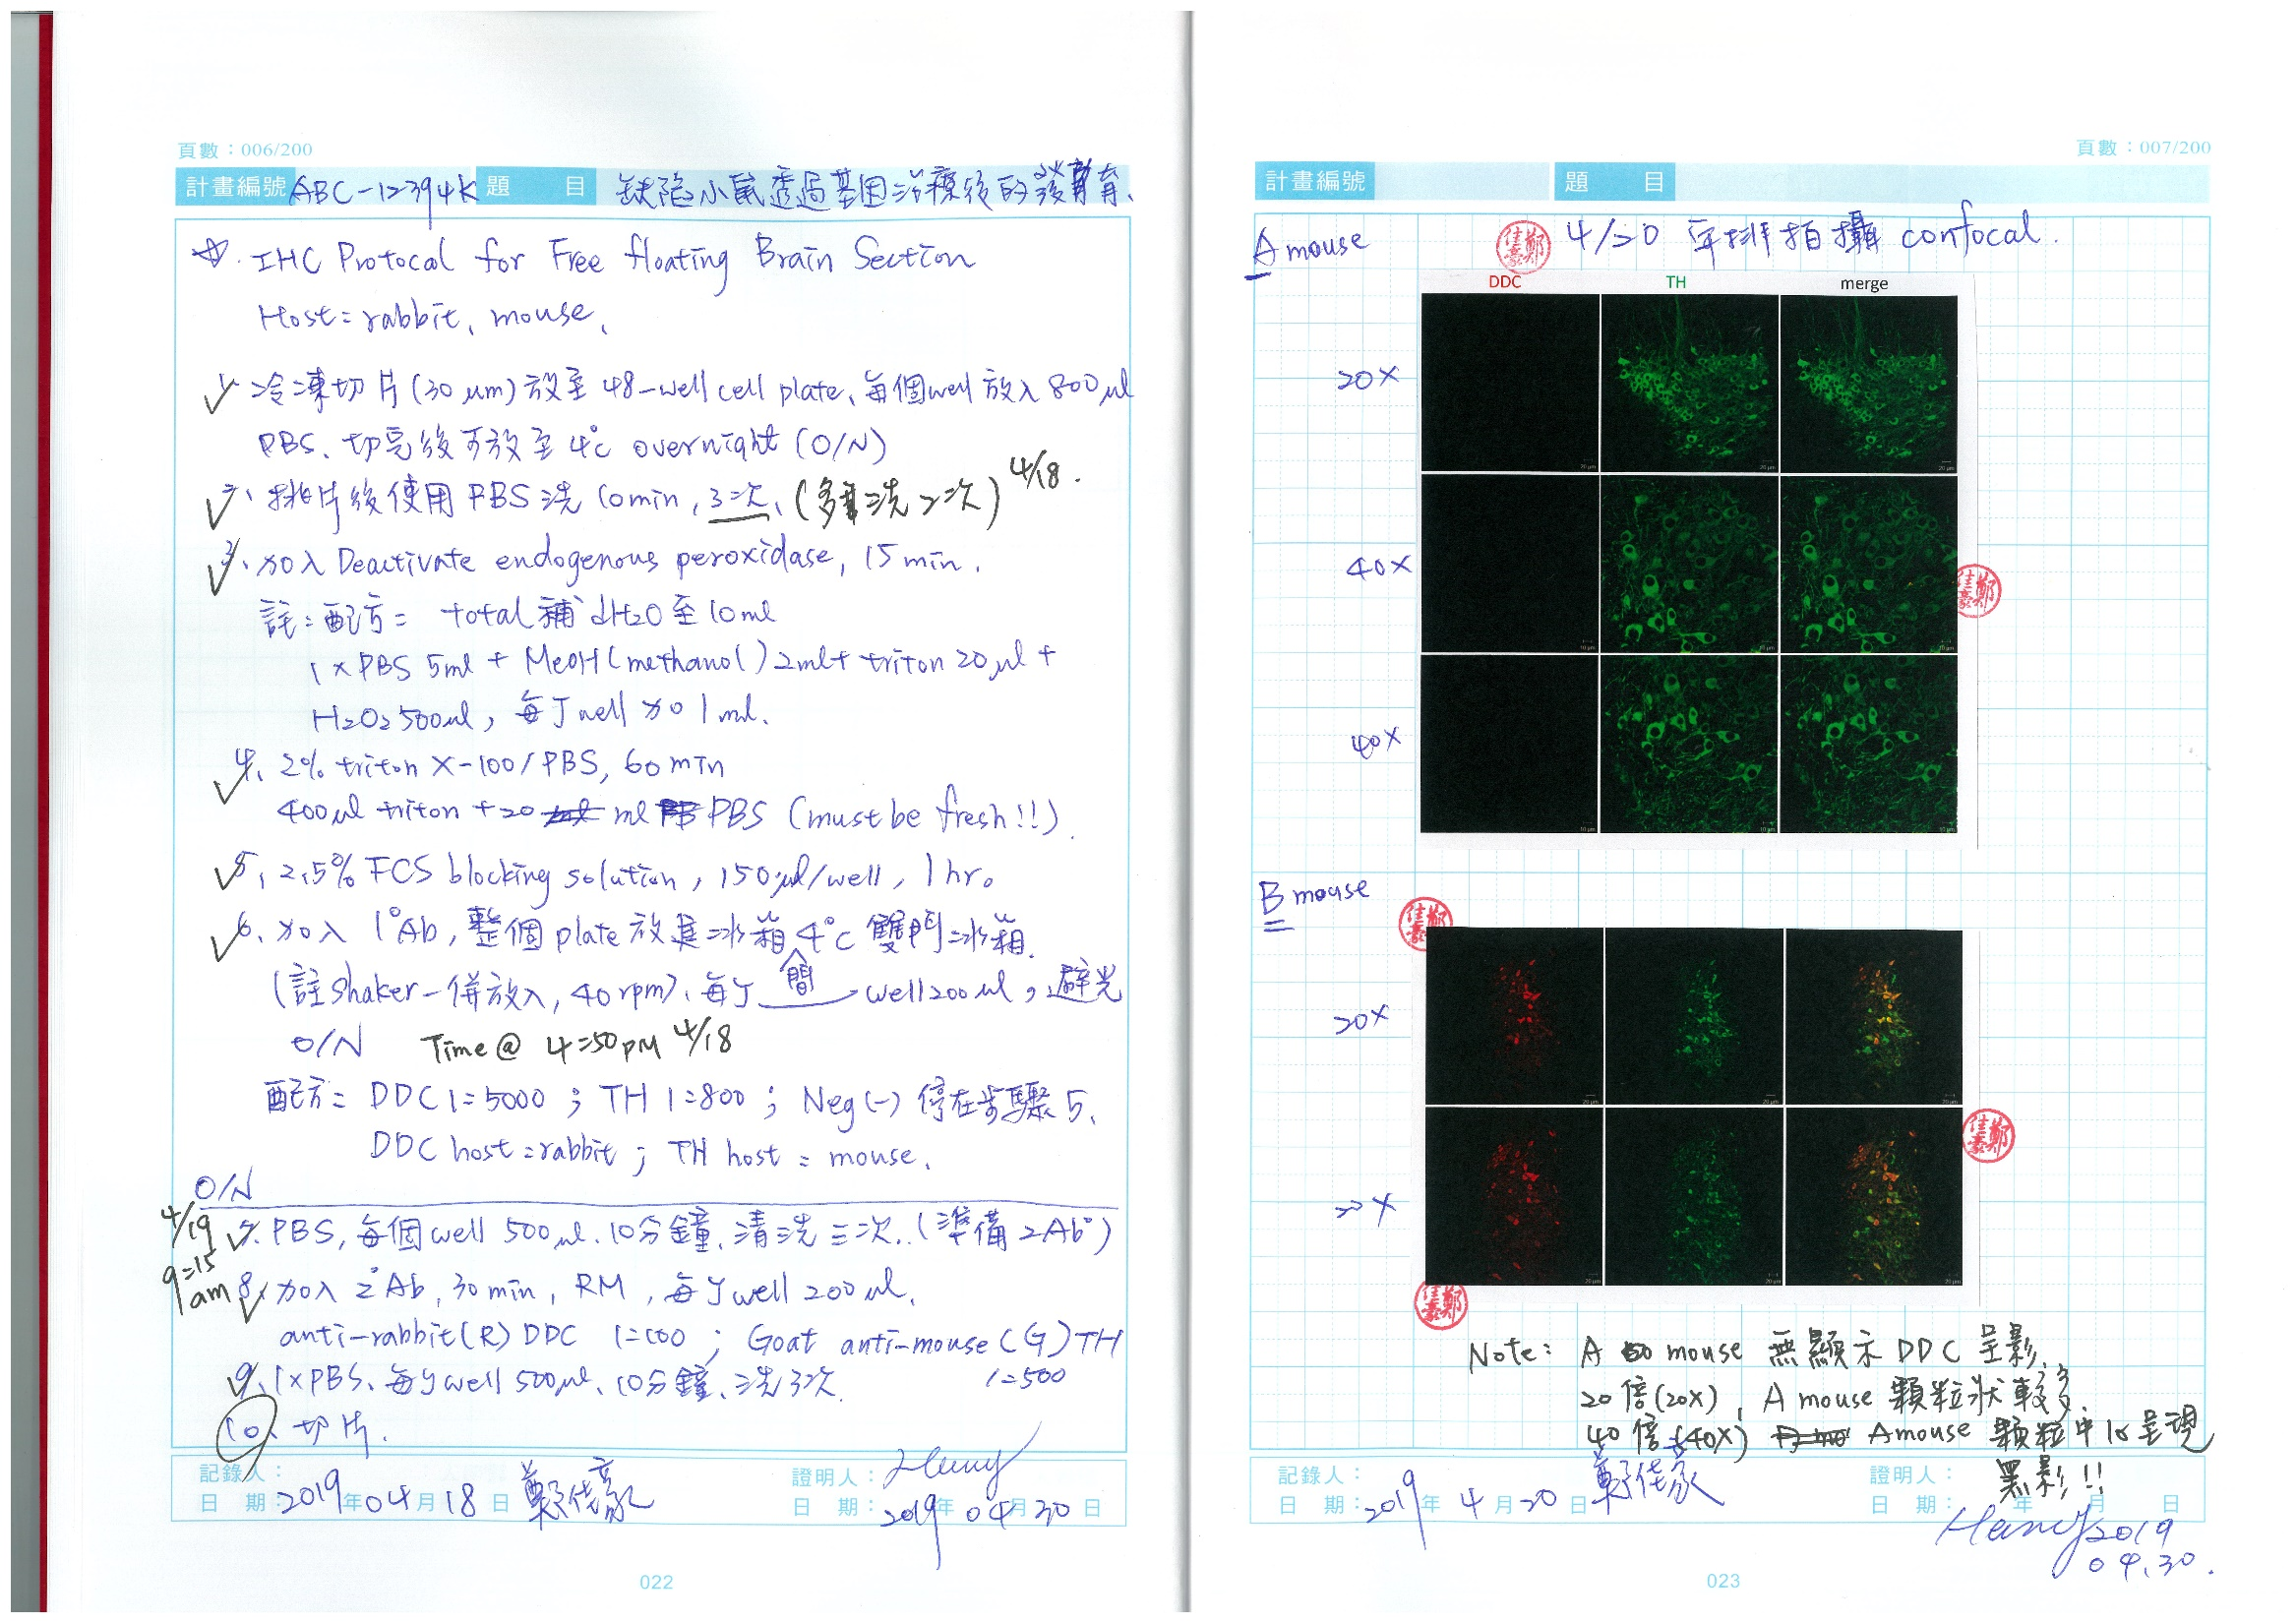 頁數：006/200
計畫編號 ABC-12394K 題目 缺陷小鼠透過基因治療後的發育.
☆. IHC Protocal for Free floating Brain Section
Host = rabbit, mouse,
1. 冷凍切片 (30 μm) 放至 48-well cell plate, 每個well 放入 800 μl
PBS, 切完後可放至 4°C overnight (O/N)
2. 挑片後使用 PBS 洗 10min, 3次, (多洗2次) 4/18.
3. 加入 Deactivate endogenous peroxidase, 15 min.
註: 配方= total 補 dH2O 至 10ml
1 x PBS 5ml + MeOH (methanol) 2ml + triton 20 μl +
H2O2 500μl, 每丁 well 加 1 ml.
4. 2% triton X-100 / PBS, 60 min
400μl triton + 20 ml PBS (must be fresh!!).
5. 2.5% FCS blocking solution, 150μl/well, 1 hr.
6. 加入 1°Ab, 整個 plate 放進冰箱 4°C 雙門冰箱.
(註 shaker 一併放入, 40 rpm), 每丁 well 200 μl, 避光
O/N Time @ 4=50 PM 4/18
配方= DDC 1=5000 ; TH 1=800 ; Neg(-) 停在步驟 5.
DDC host = rabbit ; TH host = mouse.
O/N
4/19 9=15 am
7. PBS, 每個 well 500 μl, 10分鐘, 清洗三次. (準備 2Ab°)
8. 加入 2°Ab, 30 min, RM, 每丁 well 200 μl.
anti-rabbit (R) DDC 1=100 ; Goat anti-mouse (G) TH
1=500
9. 1xPBS, 每丁 well 500μl, 10分鐘, 洗3次.
10. 切片.
記錄人：
日期：2019年04月18日 鄭佳豪
證明人：Henry
日期：2019年04月30日
022
頁數：007/200
計畫編號 題目
A mouse 4/20 安排拍攝 confocal.
DDC TH merge
20X
40X
40X
B mouse
20X
20X
Note: A mouse 無顯示 DDC 呈影,
20倍(20X), A mouse 顆粒狀較多,
40倍(40X) A mouse 顆粒中心呈現
黑影!!
記錄人：
日期：2019年4月20日 鄭佳豪
證明人：
日期： 年 月 日
Henry 2019
04.30.
023